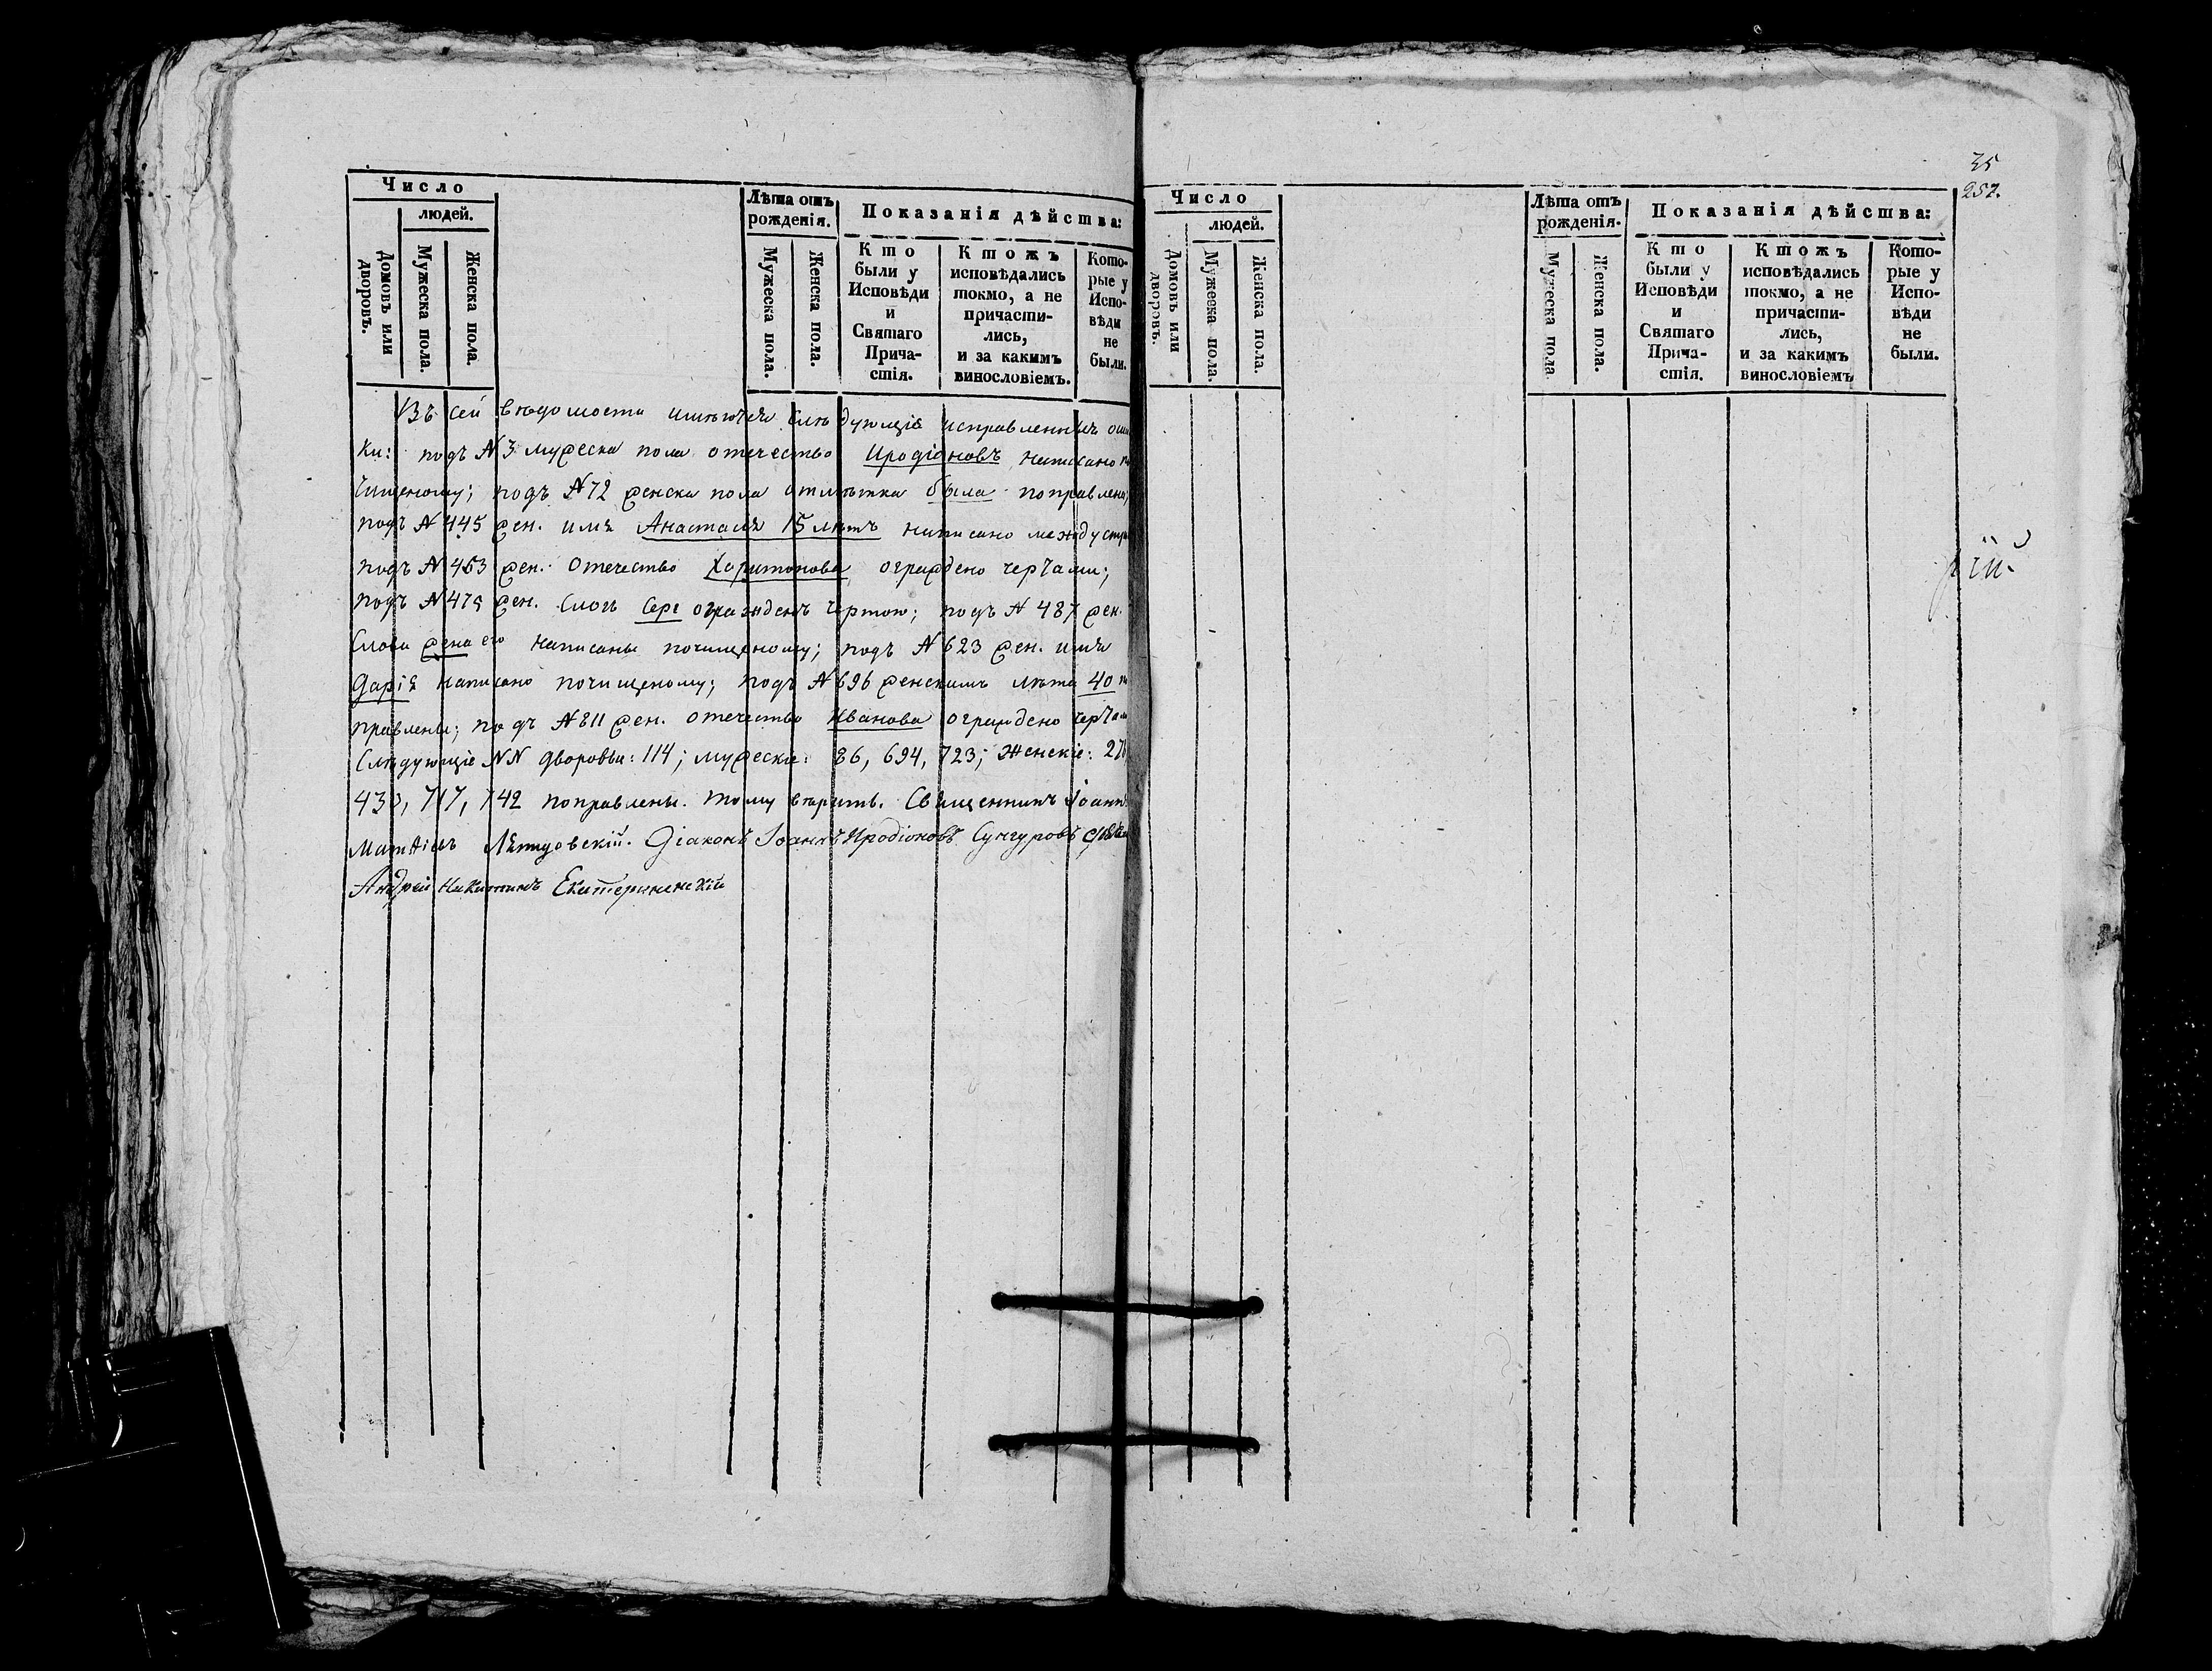 Число
людей.
Домовъ или дворовъ.
Мужеска пола.
Женска пола.
Лѣта отъ рожденія.
Мужеска пола.
Женска пола.
Показанія дѣйства:
Кто были у Исповѣди и Святаго Прича-стія.
Ктожъ исповѣдались токмо, а не причасти-лись, и за какимъ винословіемъ.
Кото-рые у Испо-вѣди не были.
Въ сей вѣдомости имѣются слѣдующіе исправленныя оши
ки: подъ N 3 мужеска пола отечество Иродіоновъ написано по
чищеному; подъ N 72 женска пола отмѣтка была поправлена;
подъ N 445 жен. имя Анастасія 15 лѣтъ написано между стро
подъ N 453 жен. отечество Харитонова ограждено чертами;
подъ N 475 жен. слогъ Сере огражденъ чертою; подъ N 487 жен.
слова жена его написаны почищеному; подъ N 623 жен. имя
Дарія написано почищеному; подъ N 696 женскимъ лѣта 40 по
правлены; подъ N 811 жен. отечество Иванова ограждено черта
Слѣдующіе NN дворовыи: 114; мужескіе: 86, 694, 723; Женскіе: 27
433, 717, 742 поправлены. тому вѣрить. Священникъ Іоаннъ
Матѳіевъ Діаконъ Іоаннъ Иродіоновъ Сунгуровъ
Андрей Никитинъ Екатерининскій
35
257.
Число
людей.
Домовъ или дворовъ.
Мужеска пола.
Женска пола.
Лѣта отъ рожденія.
Мужеска пола
Женска пола.
Показанія дѣйства:
Кто были у Исповѣди и Святаго Прича-стія.
Ктожъ исповѣдались токмо, а не причасти-лись, и за какимъ винословіемъ
Кото-рые у Испо-вѣди не были.